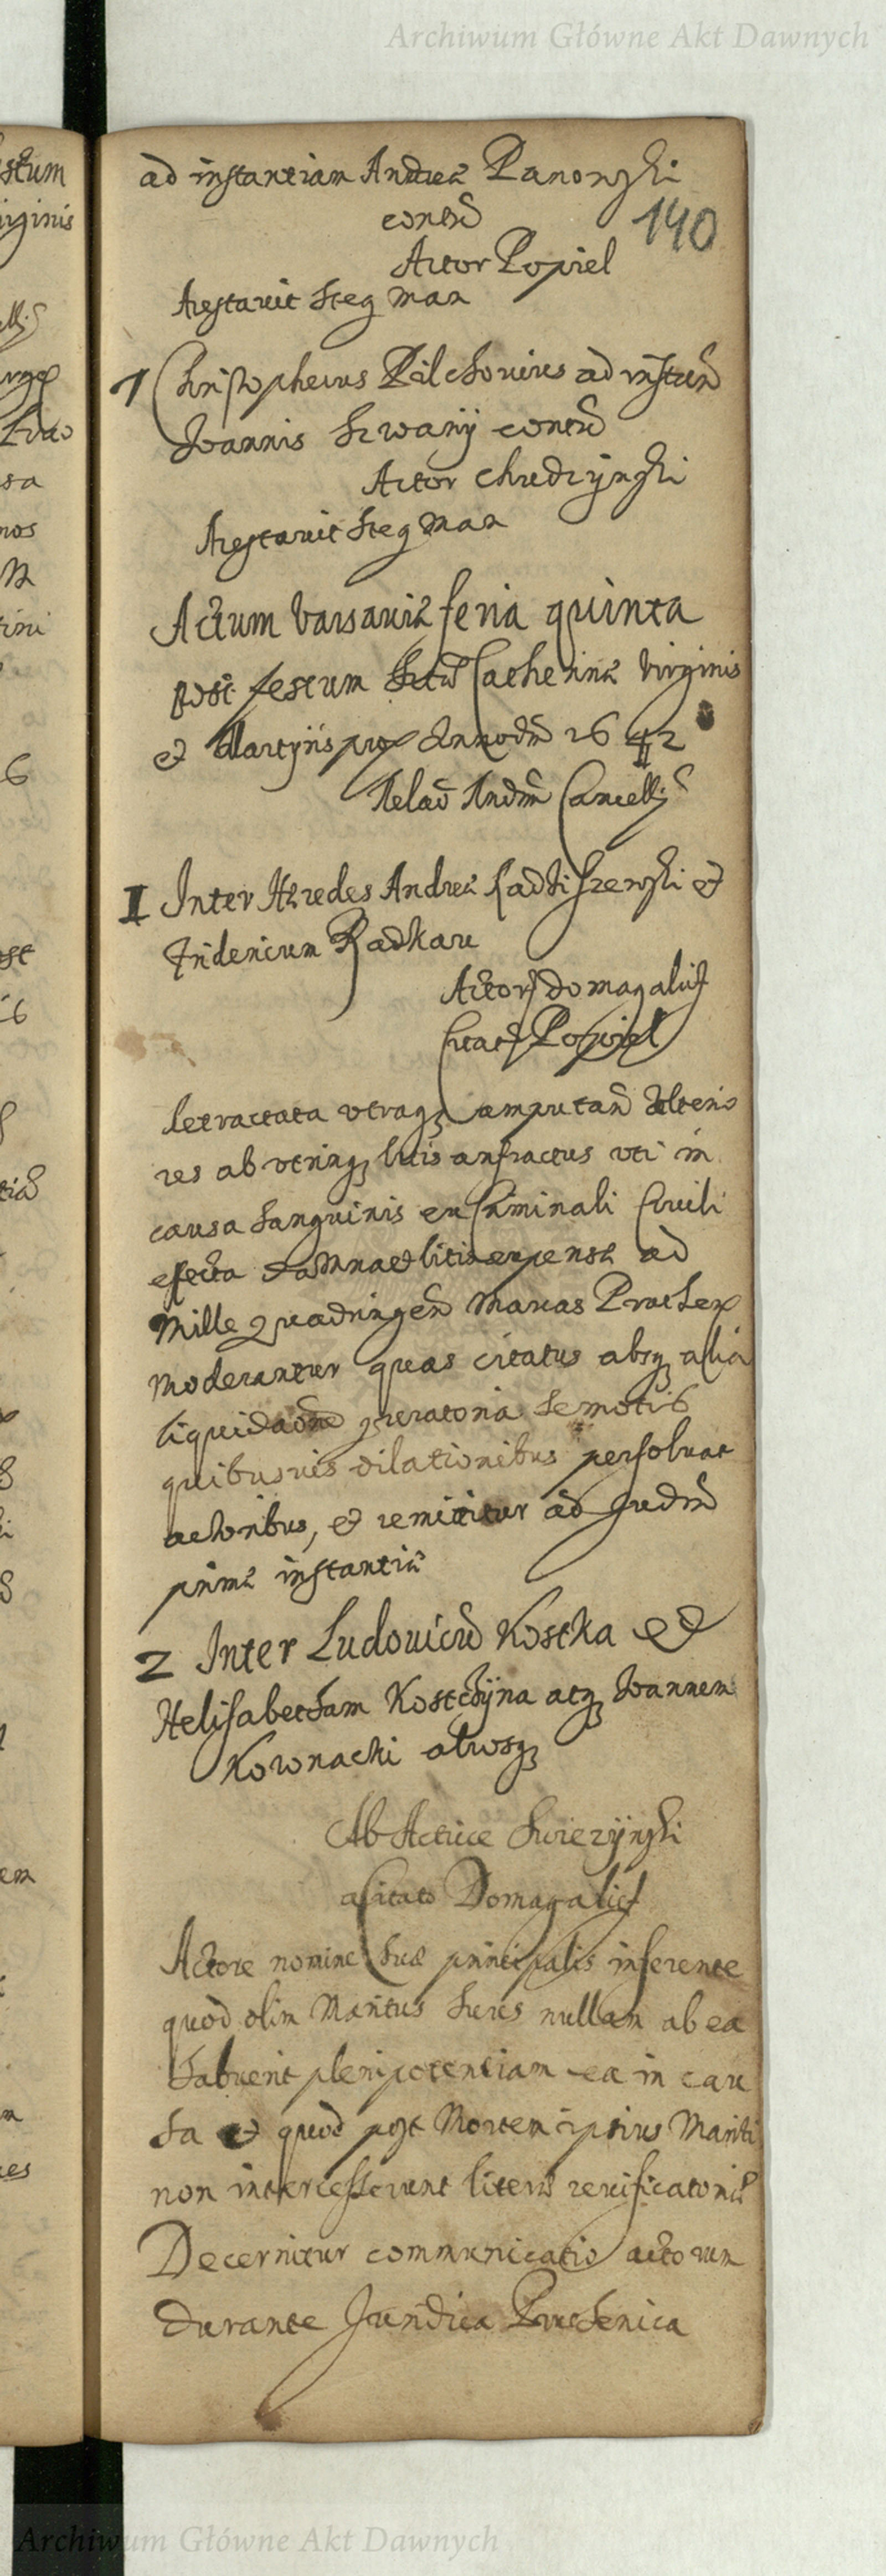 Archiwum Główne Akt Dawnych
ad instantiam Andreæ Panowski
contrã
140
Actor Popiel
Arestavit Stegman
7 Christophevus Pilchovius ad instañ
Joannis Szwanÿ contrã
Actor Chudzÿnski
Arestavit Stegman
Actum Varsaviæ feria quinta
post festum Sctæ Catherinæ Virginis
et Martÿris prox Annodñi 1642
Relaõ Andm Cancellÿ
I Inter Hæredes Andreæ Radziszewski et
Fridericum Radkau
Actor Domagalicz
Citati Popiel
retractata utraq amputañ ulterio
res ab utrinq litis anfractus uti in
causa sanguinis ex Criminali Civili
efecta damna et litis expensæ ad
Mille Quadringeñ Marcas Pruthex
moderantur quas citatus absq alia
liquidaõne iuratoria semotis
quibusvis dilationibus persolvat
actoribus, et remititur ad Judm
primæ instantiæ
2 Inter Ludovicũ Kostka et
Helisabetham Kostczÿna atq Joannem
Kownacki aliosq
Ab Actrice Swiezÿnski
a Citato Domagalicz
Actore nomine suæ principalis inferente
quod olim Maritus suus nullam ab ea
habuerit plenipotentiam ea in cau
sa et quod post Mortem ipsius Mariti
non intercesserunt literæ reificatoriæ
Decernitur communicatio actorum
durante Juridica Pruthenica
Archiwum Główne Akt Dawnych